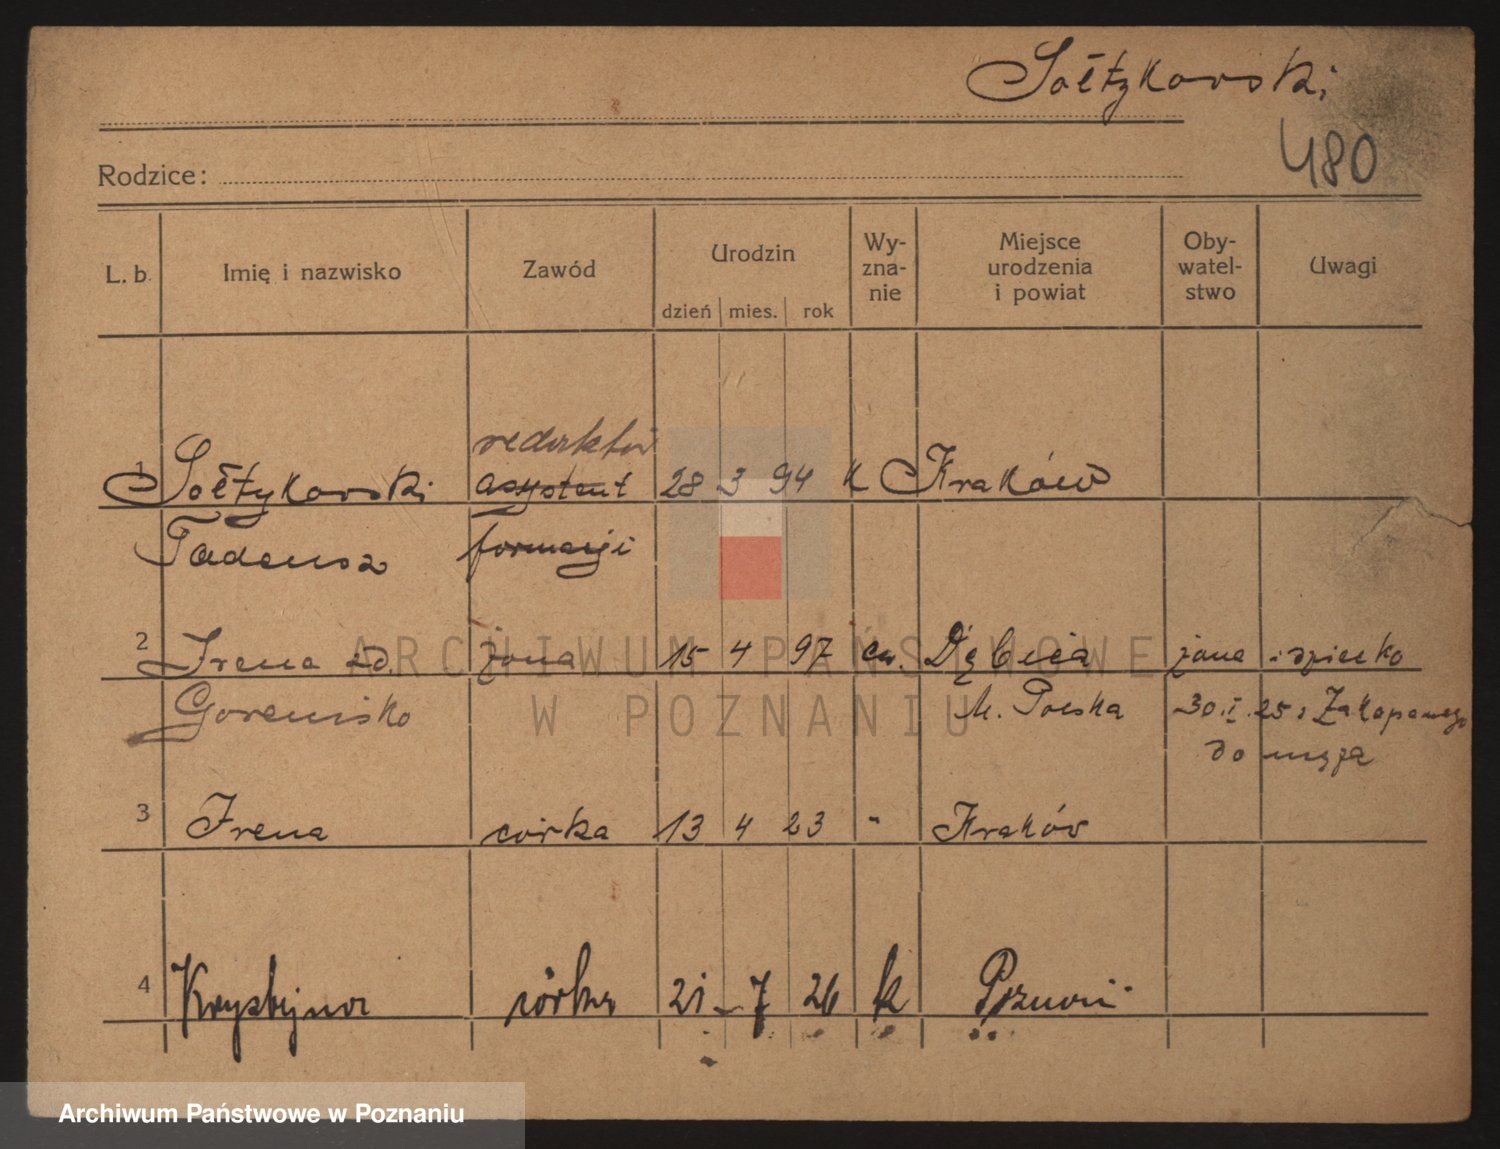 Sołtykowski
480
Rodzice:
L. b. Imię i nazwisko Zawód Urodzin dzień mies. rok Wyznanie Miejsce urodzenia i powiat Obywatelstwo Uwagi
redaktor
1 Sołtykowski asystent 28 3 94 k Kraków
Tadeusz formacji
2 Irena zd. żona 15 4 97 Dębica żona
M. Polska 30.I.25 z Zakopanego
do męża
3 Irena córka 13 4 23 " Kraków
4 Krystyna córka 21 7 26 k Poznań
ARCHIWUM PAŃSTWOWE
W POZNANIU
Archiwum Państwowe w Poznaniu